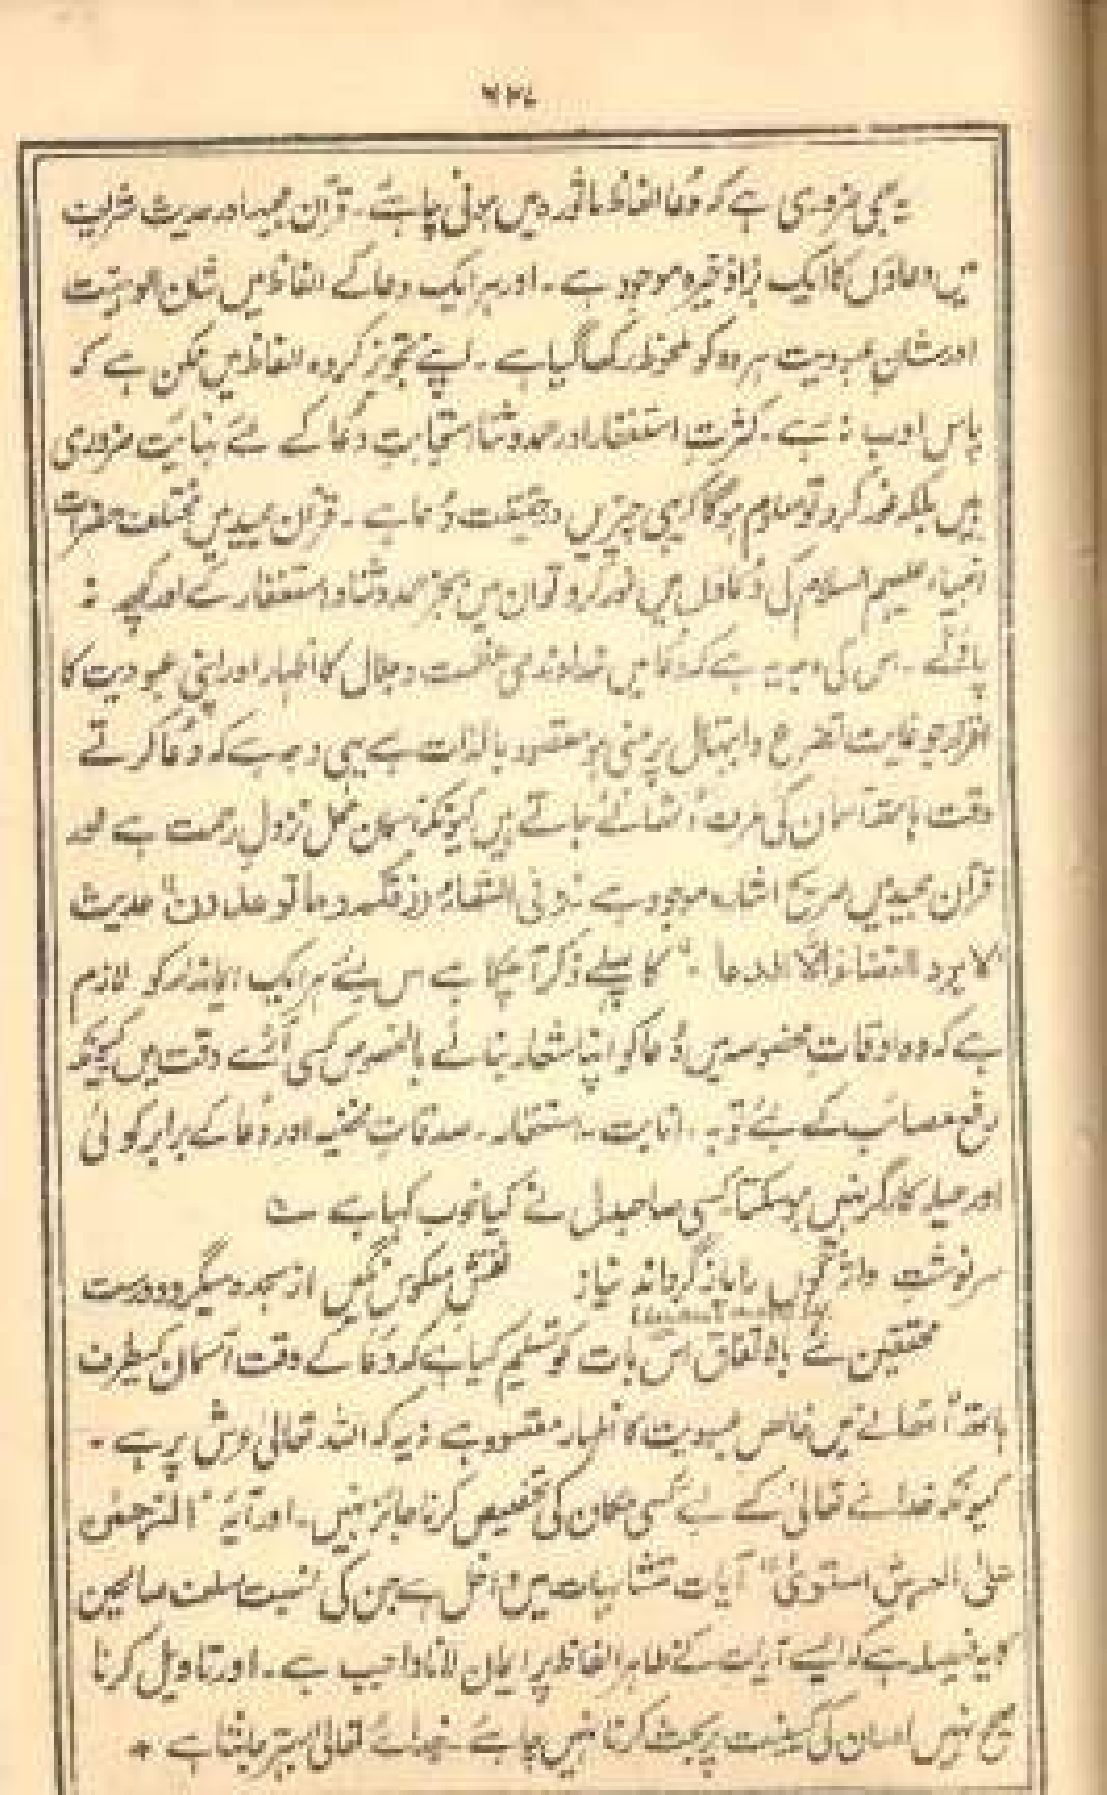 ۶۲۸
یہ بھی ضروری ہے کہ دُعا الفاظ ماثورہ میں ہونی چاہئے۔ قرآن مجید اور حدیث شریف
میں دعاؤں کا ایک بڑا ذخیرہ موجود ہے۔ اور ہر ایک دعا کے الفاظ میں شان الوہیت
اور شان عبودیت ہر دو کو ملحوظ رکھا گیا ہے۔ اپنے تجویز کردہ الفاظ میں ممکن ہے کہ
پاس ادب نہ رہے۔ کثرت استغفار اور حمد و ثنا استجابت دُعا کے لئے نہایت ضروری
ہیں بلکہ غور کرو تو معلوم ہوگا کہ یہی چیزیں درحقیقت دُعا ہے۔ قرآن مجید میں مختلف حضرات
انبیاء علیہم السلام کی دُعاؤں میں غور کرو تو ان میں بجز حمد و ثنا و استغفار کے اور کچھ نہ
پاؤگے۔ اس کی وجہ یہ ہے کہ دُعا میں خداوندی عظمت و جلال کا اظہار اور اپنی عبودیت کا
اقرار جو غایت تضرع و ابتہال پر مبنی ہو مقصود بالذات ہے یہی وجہ ہے کہ دُعا کرتے
وقت ہاتھ آسمان کی طرف اُٹھائے جاتے ہیں کیونکہ آسمان محل نزول رحمت ہے اور
قرآن مجید میں صریح اشارہ موجود ہے وفی السماء رزقکم وما توعدون" حدیث
لا یرد القضاء الا الدعا۔" کا پہلے ذکر آچکا ہے اس لئے ہر ایک ایماندار کو لازم
ہے کہ وہ اوقات مخصوصہ میں دُعا کو اپنا شعار بنائے بالخصوص کسی آڑے وقت میں کیونکہ
رفع مصائب کے لئے توبہ۔ انابت۔ استغفار۔ صدقات خفیہ اور دُعا کے برابر کوئی
اور حیلہ کارگر نہیں ہوسکتا کسی صاحبدل نے کیا خوب کہا ہے ؎
سرنوشت واژگوں را باز گرداند نیاز نقش معکوس نگیں از سجدہ میگردد درست
محققین نے بالاتفاق اس بات کو تسلیم کیا ہے کہ دُعا کے وقت آسمان کیطرف
ہاتھ اُٹھانے میں خالص عبودیت کا اظہار مقصود ہے نہ یہ کہ اللہ تعالیٰ عرش پر ہے۔
کیونکہ خدائے تعالیٰ کے لئے کسی مکان کی تخصیص کرنا جائز نہیں۔ اور آیۃ "الرحمٰن
علی العرش استویٰ" آیات متشابہات میں داخل ہے جن کی نسبت سلف صالحین
کا یہ فیصلہ ہے کہ ایسے آیات کے ظاہر الفاظ پر ایمان لانا واجب ہے۔ اور تاویل کرنا
صحیح نہیں اور ان کی کیفیت پر بحث کرنا نہیں چاہئے۔ خدائے تعالیٰ بہتر جانتا ہے *